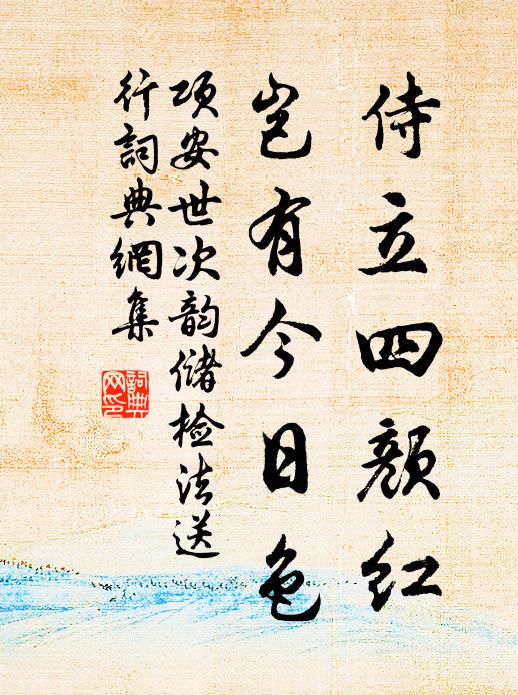 侍立四顏紅
岂有今日色
项安世次韵储检法送
行詞典網集
詞典網印